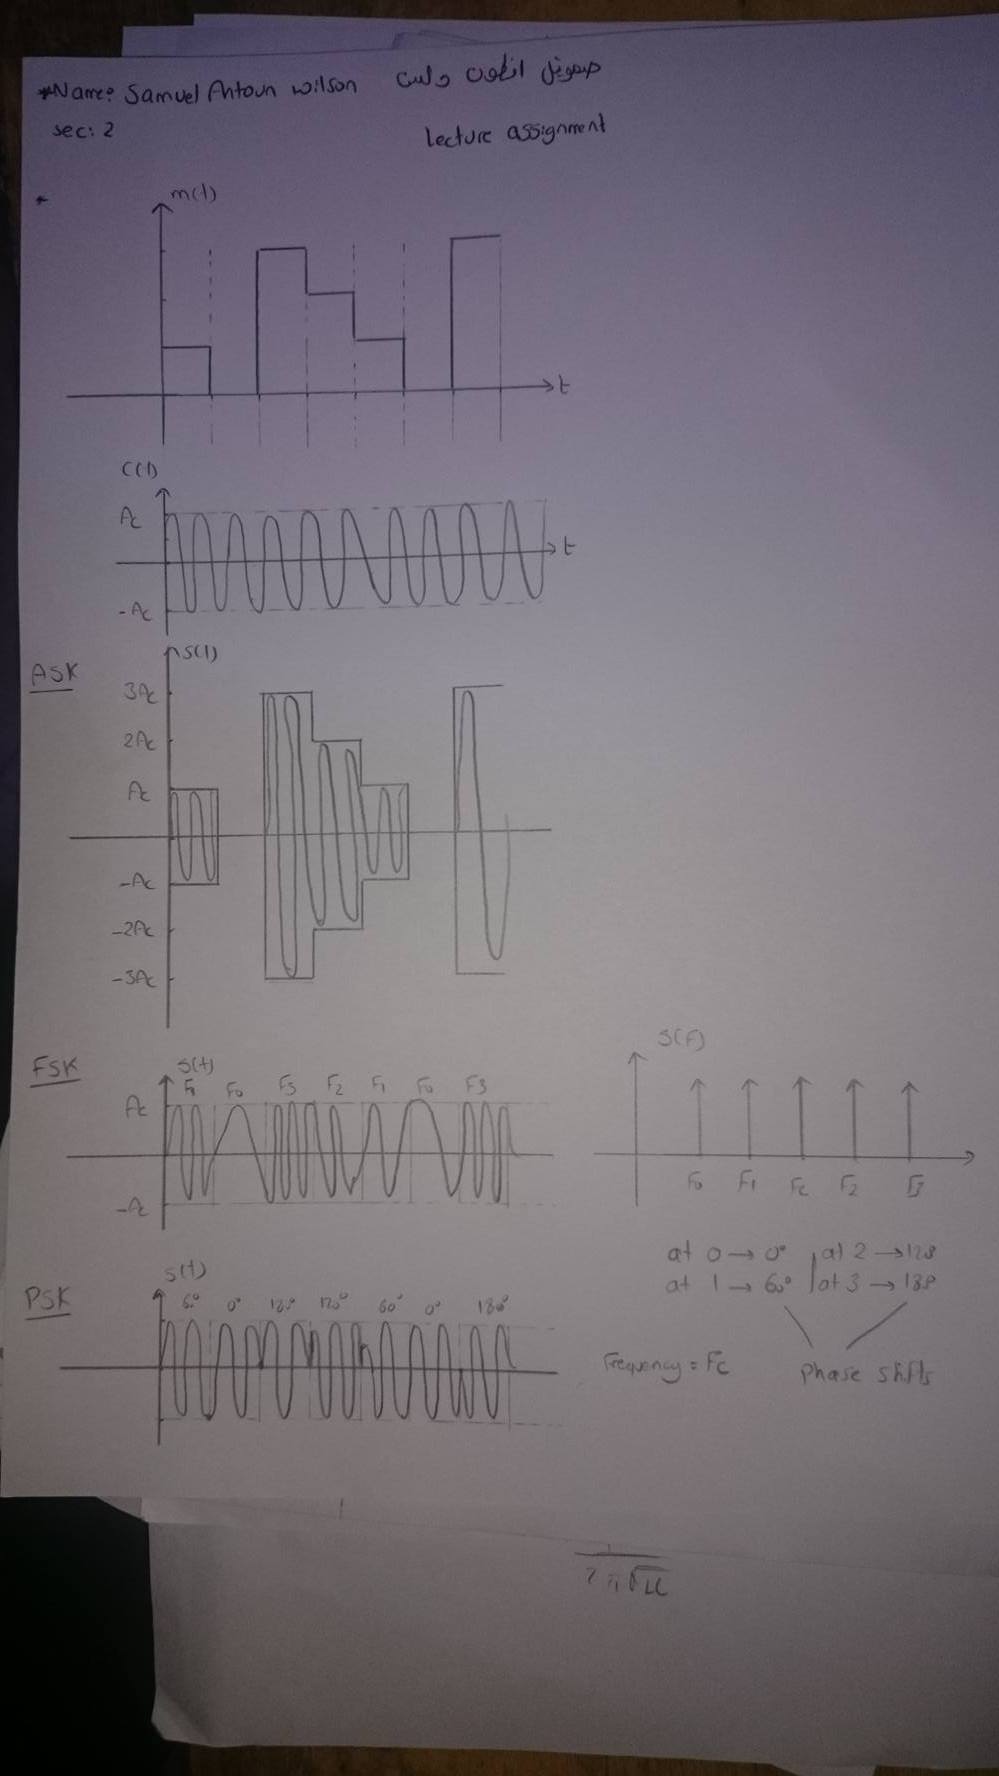 *Name: Samuel Antoun wilson صموئيل انطون ولسن
sec: 2
lecture assignment
m(t)
t
C(t)
Ac
t
-Ac
ASK
S(t)
3Ac
2Ac
Ac
-Ac
-2Ac
-3Ac
FSK
S(t)
F1 F0 F3 F2 F1 F0 F3
Ac
-Ac
S(F)
F0 F1 Fc F2 F3
at 0 → 0° at 2 → 120
at 1 → 60° at 3 → 180
PSK
S(t)
60° 0° 180° 120° 60° 0° 180°
Frequency = Fc
Phase shifts